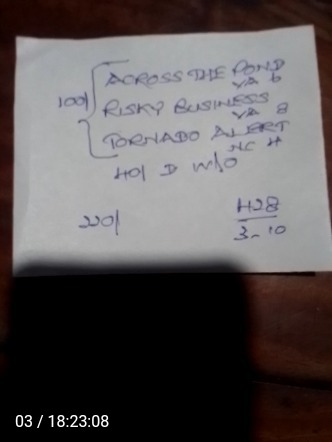 ACROSS THE POND
VA 6
100/
RISKY BUSINESS
VA 8
TORNADO ALERT
NC H
40/ D W/O
220/
H28
3-10
03 / 18:23:08